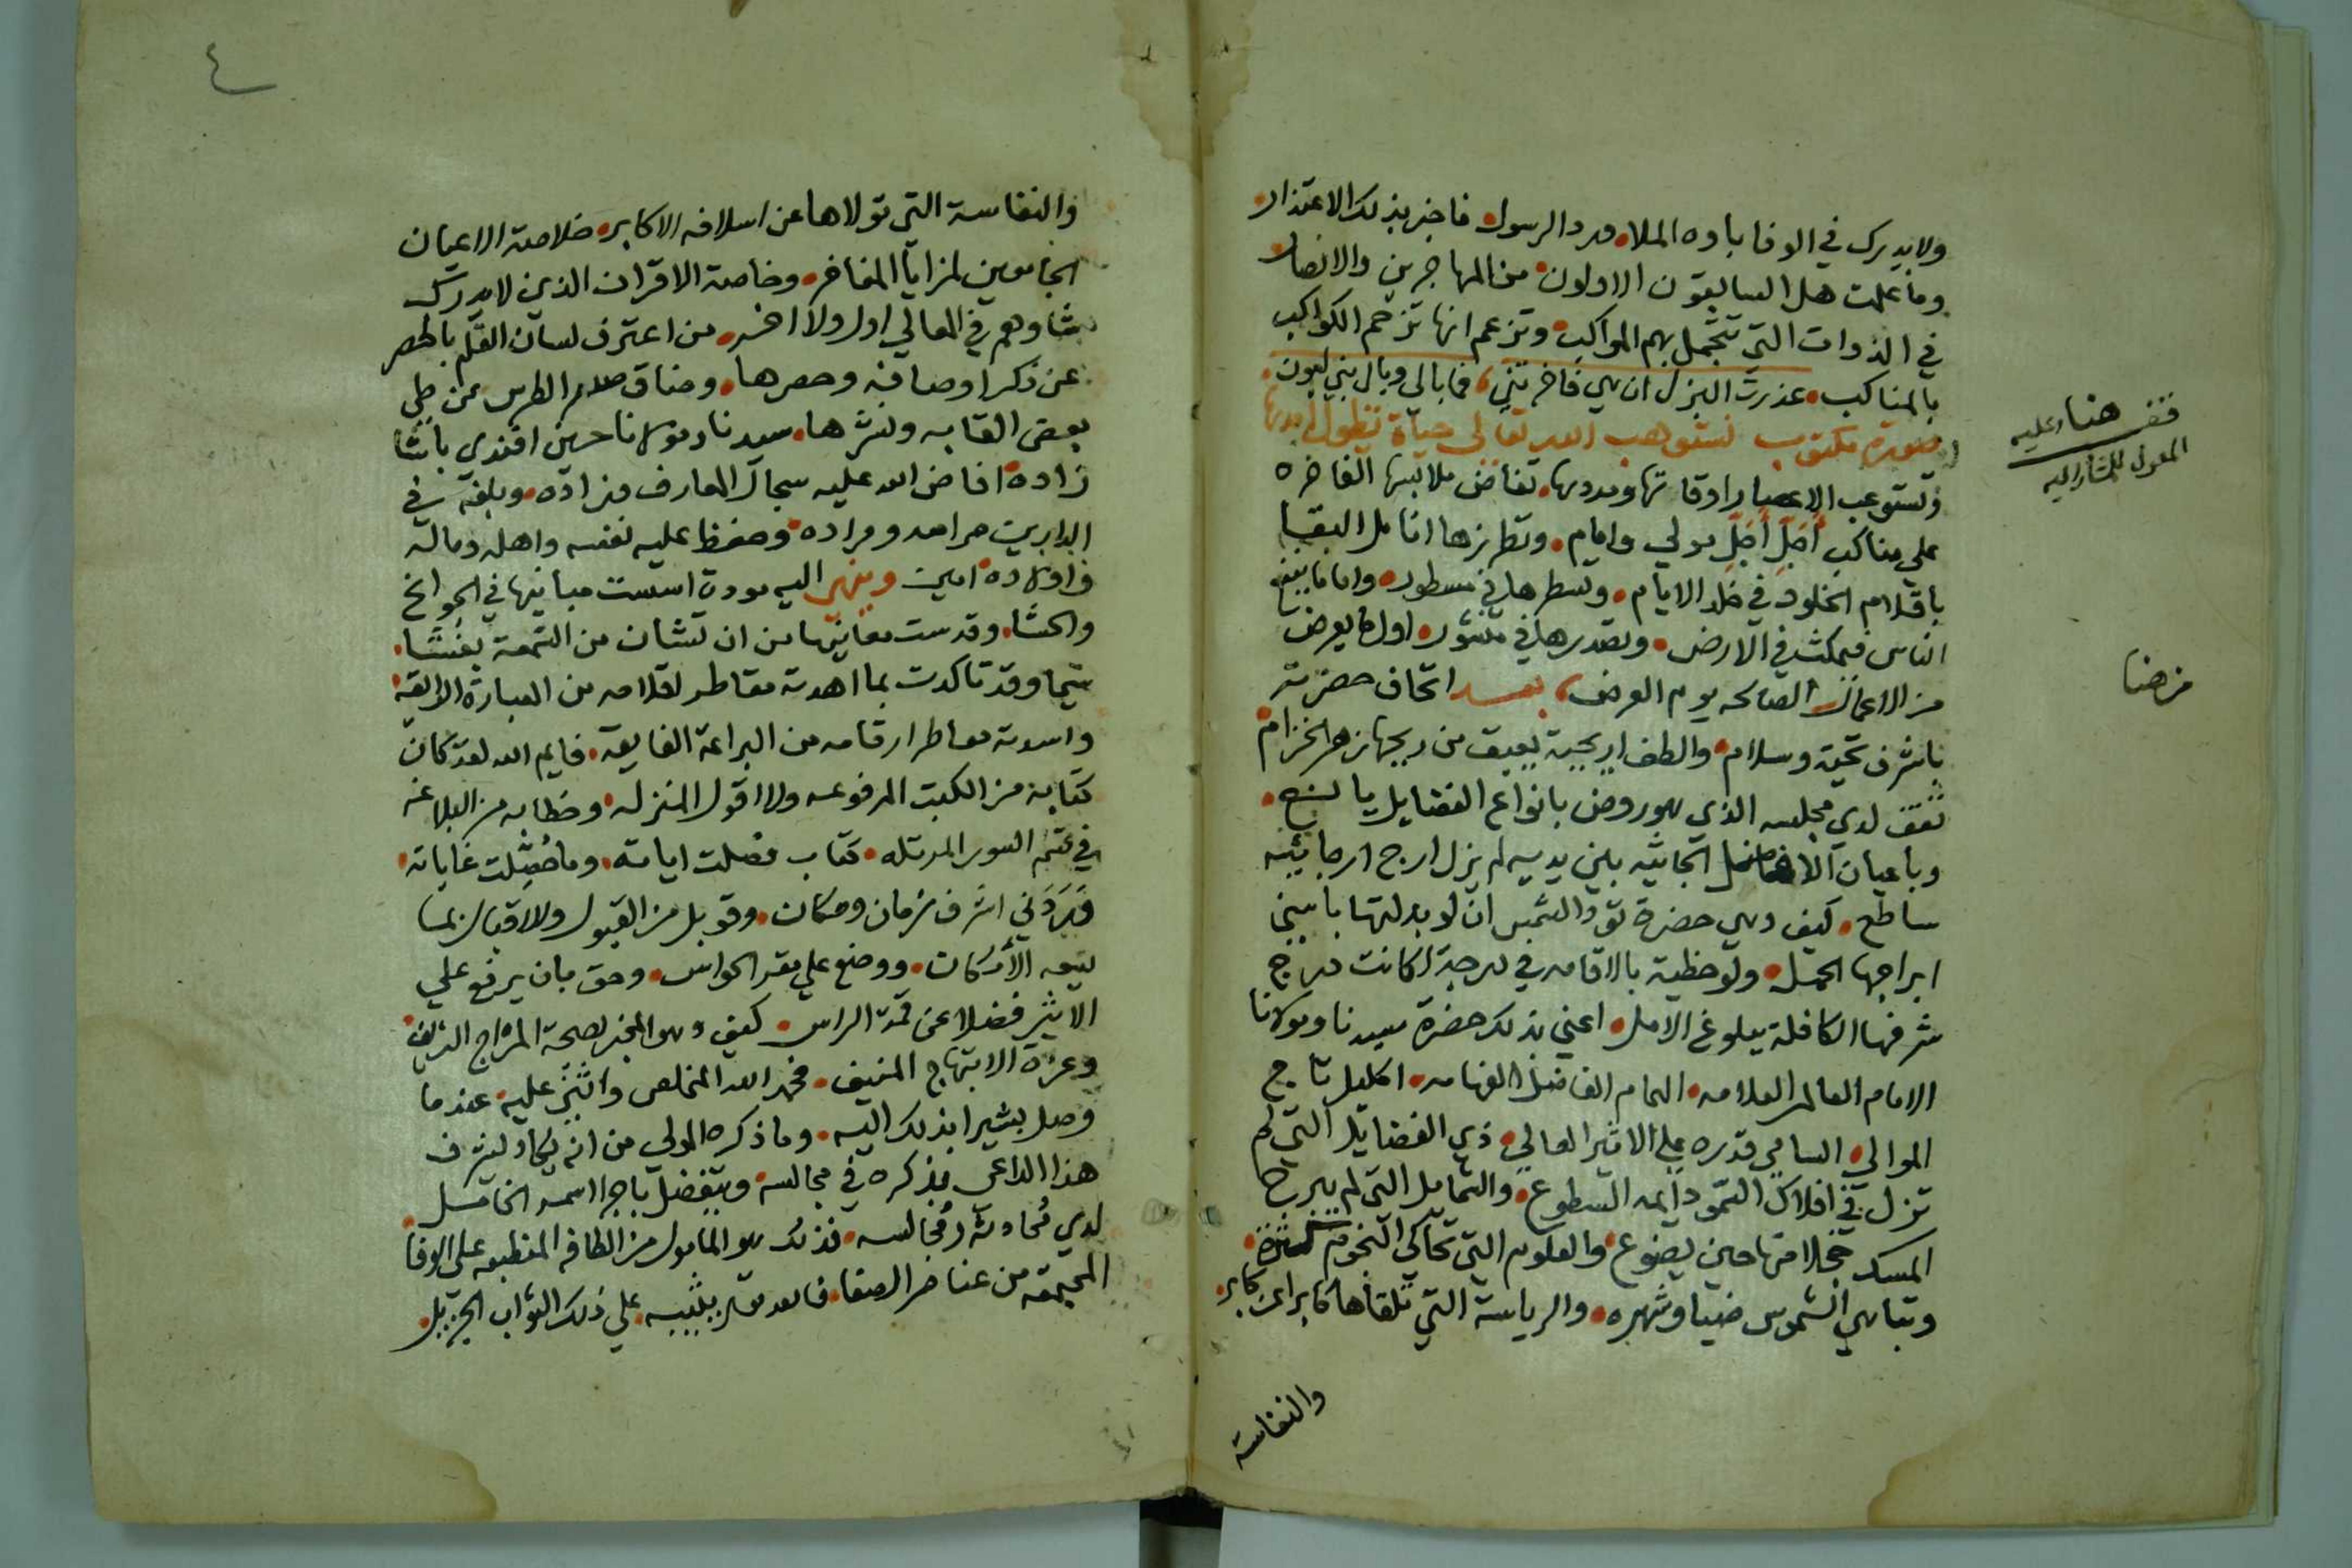 ولا يدرك في الوفا باوه الملا • مرد الرسول فاجز بذلك الاعتذار •
وما علمت هل السابقون الاولون • من المهاجرين والانصار
في الذوات التي تتجمل بهم المواكب • وتزعم انها تزحم الكواكب
بالمناكب • عذرت البزل ان هي فاخرتني ، فما بالي وبال بني لبون •
صورة مكتوب نستوهب الله تعالى حياة تطول
وتستوعب الاعصار اوقاتها ومددها • تفاض ملابسها الفاخره
على مناكب اجل اجل مولى وامام • وتطرزها انامل البقا
باقلام الخلود في خلد الايام • وتسطرها في مسطور • واما ما ينفع
الناس فيمكث في الارض • وتصدرها في منشور • اول ما يعرض
من الاعمال الصالحه يوم العرض ، بعد اتحاف حضرته
باشرف تحية وسلام • والطف اريحية يعبق من ريحها زهر الخزام
تقف لدي مجلسه الذي هو روض بانواع الفضايل يانع •
وباعيان الافاضل الجاثيه بين يديه لم يزل ارج ارجايئه
ساطع • كيف وهي حضرة تود الشمس ان لو بدلتها باسنى
ابراجها الحمل • ولو حظية بالاقامه في درجة لكانت مدراج
شرفها الكافلة ببلوغ الامل • اعني بذلك حضرة سيدنا ومولانا
الامام العالم العلامه • الهمام الفاضل الفهامه • اكليل تاج
الموالي • السامي قدره على الاثير العالي • ذي الفضايل التي لم
تزل في افلاك السمو دايمه السطوع • والشمايل التي لم يبرح
المسك خجلا منها حين يضوع • والعلوم التي تحاكي النجوم
وتباهي الشموس ضيا وشهره • والرياسة التي تلقاها كابرا عن كابر •
والنفاسة
قف هنا عليه
المعول للمشار اليه
من هنا
٤
والنفاسة التي تولاها عن اسلافه الاكابر • خلاصة الاعيان
الجامعين لمزايا المفاخر • وخاصة الاقران الذين لا يدرك
شاوهم في المعالي اول ولا اخر • من اعترف لسان القلم بالحصر
عن ذكر اوصافه وحصرها • وضاق صدر الطرس عن طي
بعض القابه ونشرها • سيدنا ومولانا حسين افندي باشا
زاده • افاض الله عليه سجال المعارف وزاده • وبلغه في
الدارين مرامه ومراده • وحفظ عليه نفسه واهله وماله
واولاده • امين وينهي اليه مودة اسست مبانيها في الجوانح
والحشا • وقدست معانيها من ان تشان من التهمة بغشا •
سيما وقد تاكدت بما اهدته مقاطر اقلامه من العبارة الرايقه •
واسدته معاطر ارقامه من البراعة الفايقه • فايم الله لقد كان
كتابه من الكتب المرفوعه ولا اقول المنزله • وخطابه من البلاغه
في عقم السور المرتله • كتاب فصلت اياته • وما حصلت غاياته •
فبرد في اشرف زمان ومكان • وقوبل من القبول والاقبال بما
يسعه الامكان • ووضع على مقر الحواس • وحق بان يرفع على
الاثير فضلا عن قمة الراس • كيف وهو المخبر بصحة المزاج الشريف •
وعزة الابتهاج المنيف • فحمد الله المخلص واثنى عليه • عندما
وصل بشيرا بذلك اليه • وما ذكره المولى من انه يكاد يشرف
هذا الداعي بذكره في مجالسه • ويتفضل باجرا اسمه الخامل
لدي محادثه ومجالسه • فذلك هو المامول من الطافه المنطبعه على الوفا •
المجتمعه من عناصر الصفا • فالله يثيبه على ذلك الثواب الجزيل •